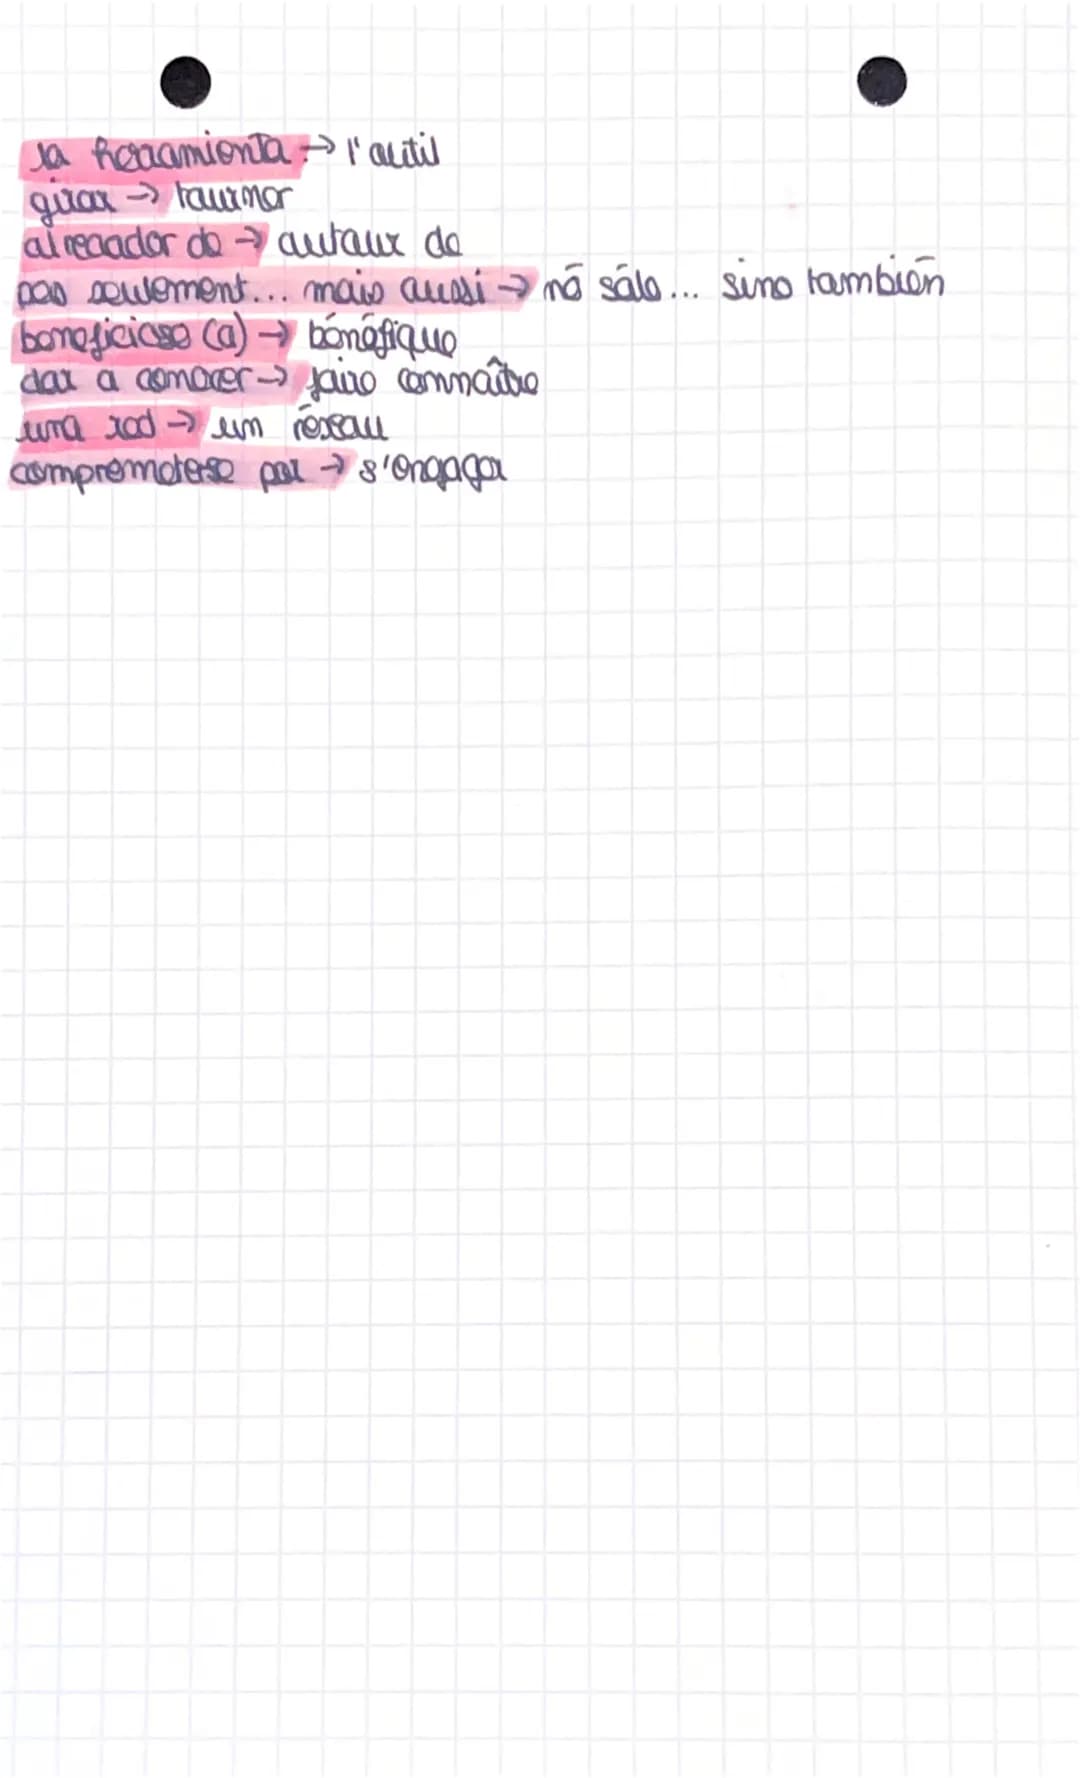 la herramienta → l'outil
girar → tourner
alrededor de → autour de
pas seulement... mais aussi → nó sólo... sino también
beneficioso (a) → bénéfique
dar a conocer → faire connaître
una red → un réseau
comprometerse por → s'engager